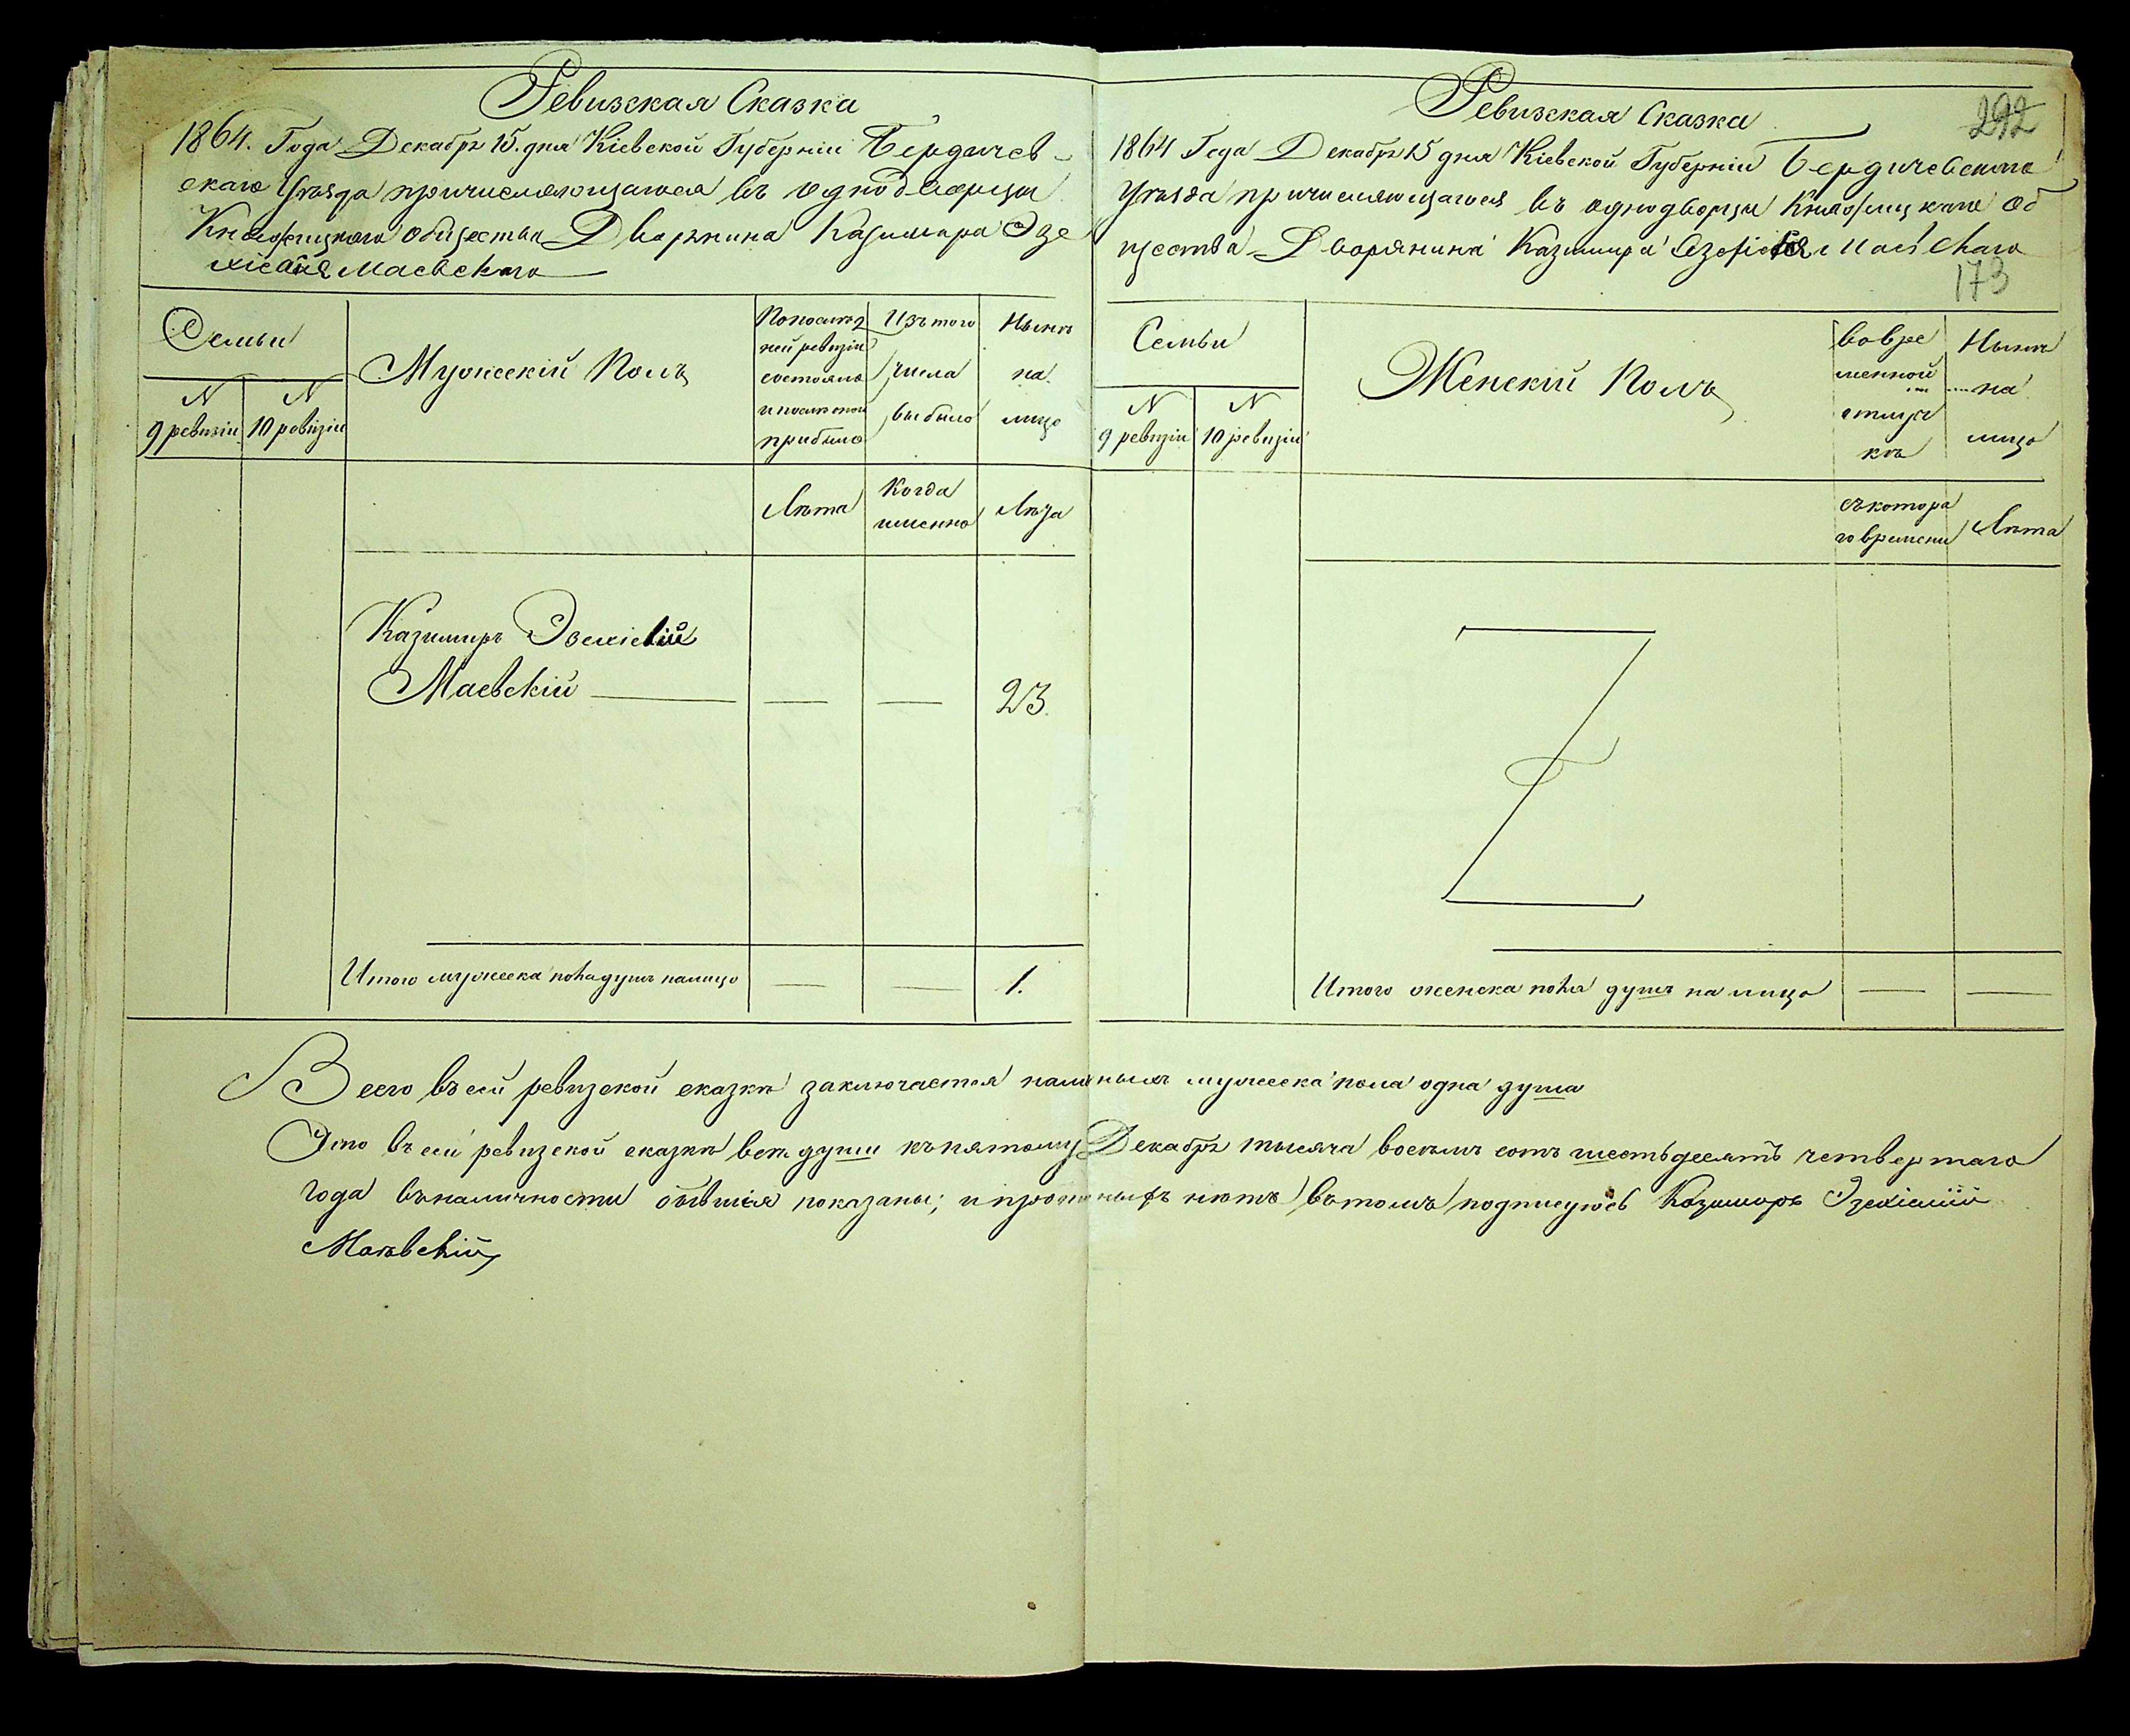 Ревизская Сказка
1864. Года Декабря 15. дня Кіевской Губерніи Бердичев-
скаго Уѣзда причисляющагося въ однодворцы
общества Дворянина Казимира Эзе
Маевскаго
Семьи
Мужескій Полъ
По послѣд
ней ревизіи
состояло
и послѣ оной
прибыло
Изъ того
числа
выбыло
Нынѣ
на
лицо
N
9 ревизіи
N
10 ревизіи
Лѣта
Когда
именно
Лѣта
Казимиръ
Маевскій
23.
Итого мужеска пола душъ налицо
1.
Ревизская Сказка
292
1864 Года Декабря 15 дня Кіевской Губерніи Бердичевскаго
Уѣзда причисляющагося въ однодворцы Об
щества Дворянина Казимира Маевскаго
173
Семьи
Женскій Полъ
Во вре
менной
отлуч
кѣ
Нынѣ
на
лицо
N
9 ревизіи
N
10 ревизіи
съ котора
го времени
Лѣта
Итого женска пола душъ на лицо
Всего въ сей ревизской сказкѣ заключается наличныхъ мужеска пола одна душа
Что въ сей ревизской сказкѣ всѣ души къ пятому Декабря тысяча восемь сотъ шестьдесятъ четвертаго
года въ наличности бывшія показаны; и прописныхъ нѣтъ въ томъ подписуюсь Казимиръ
Маевскій